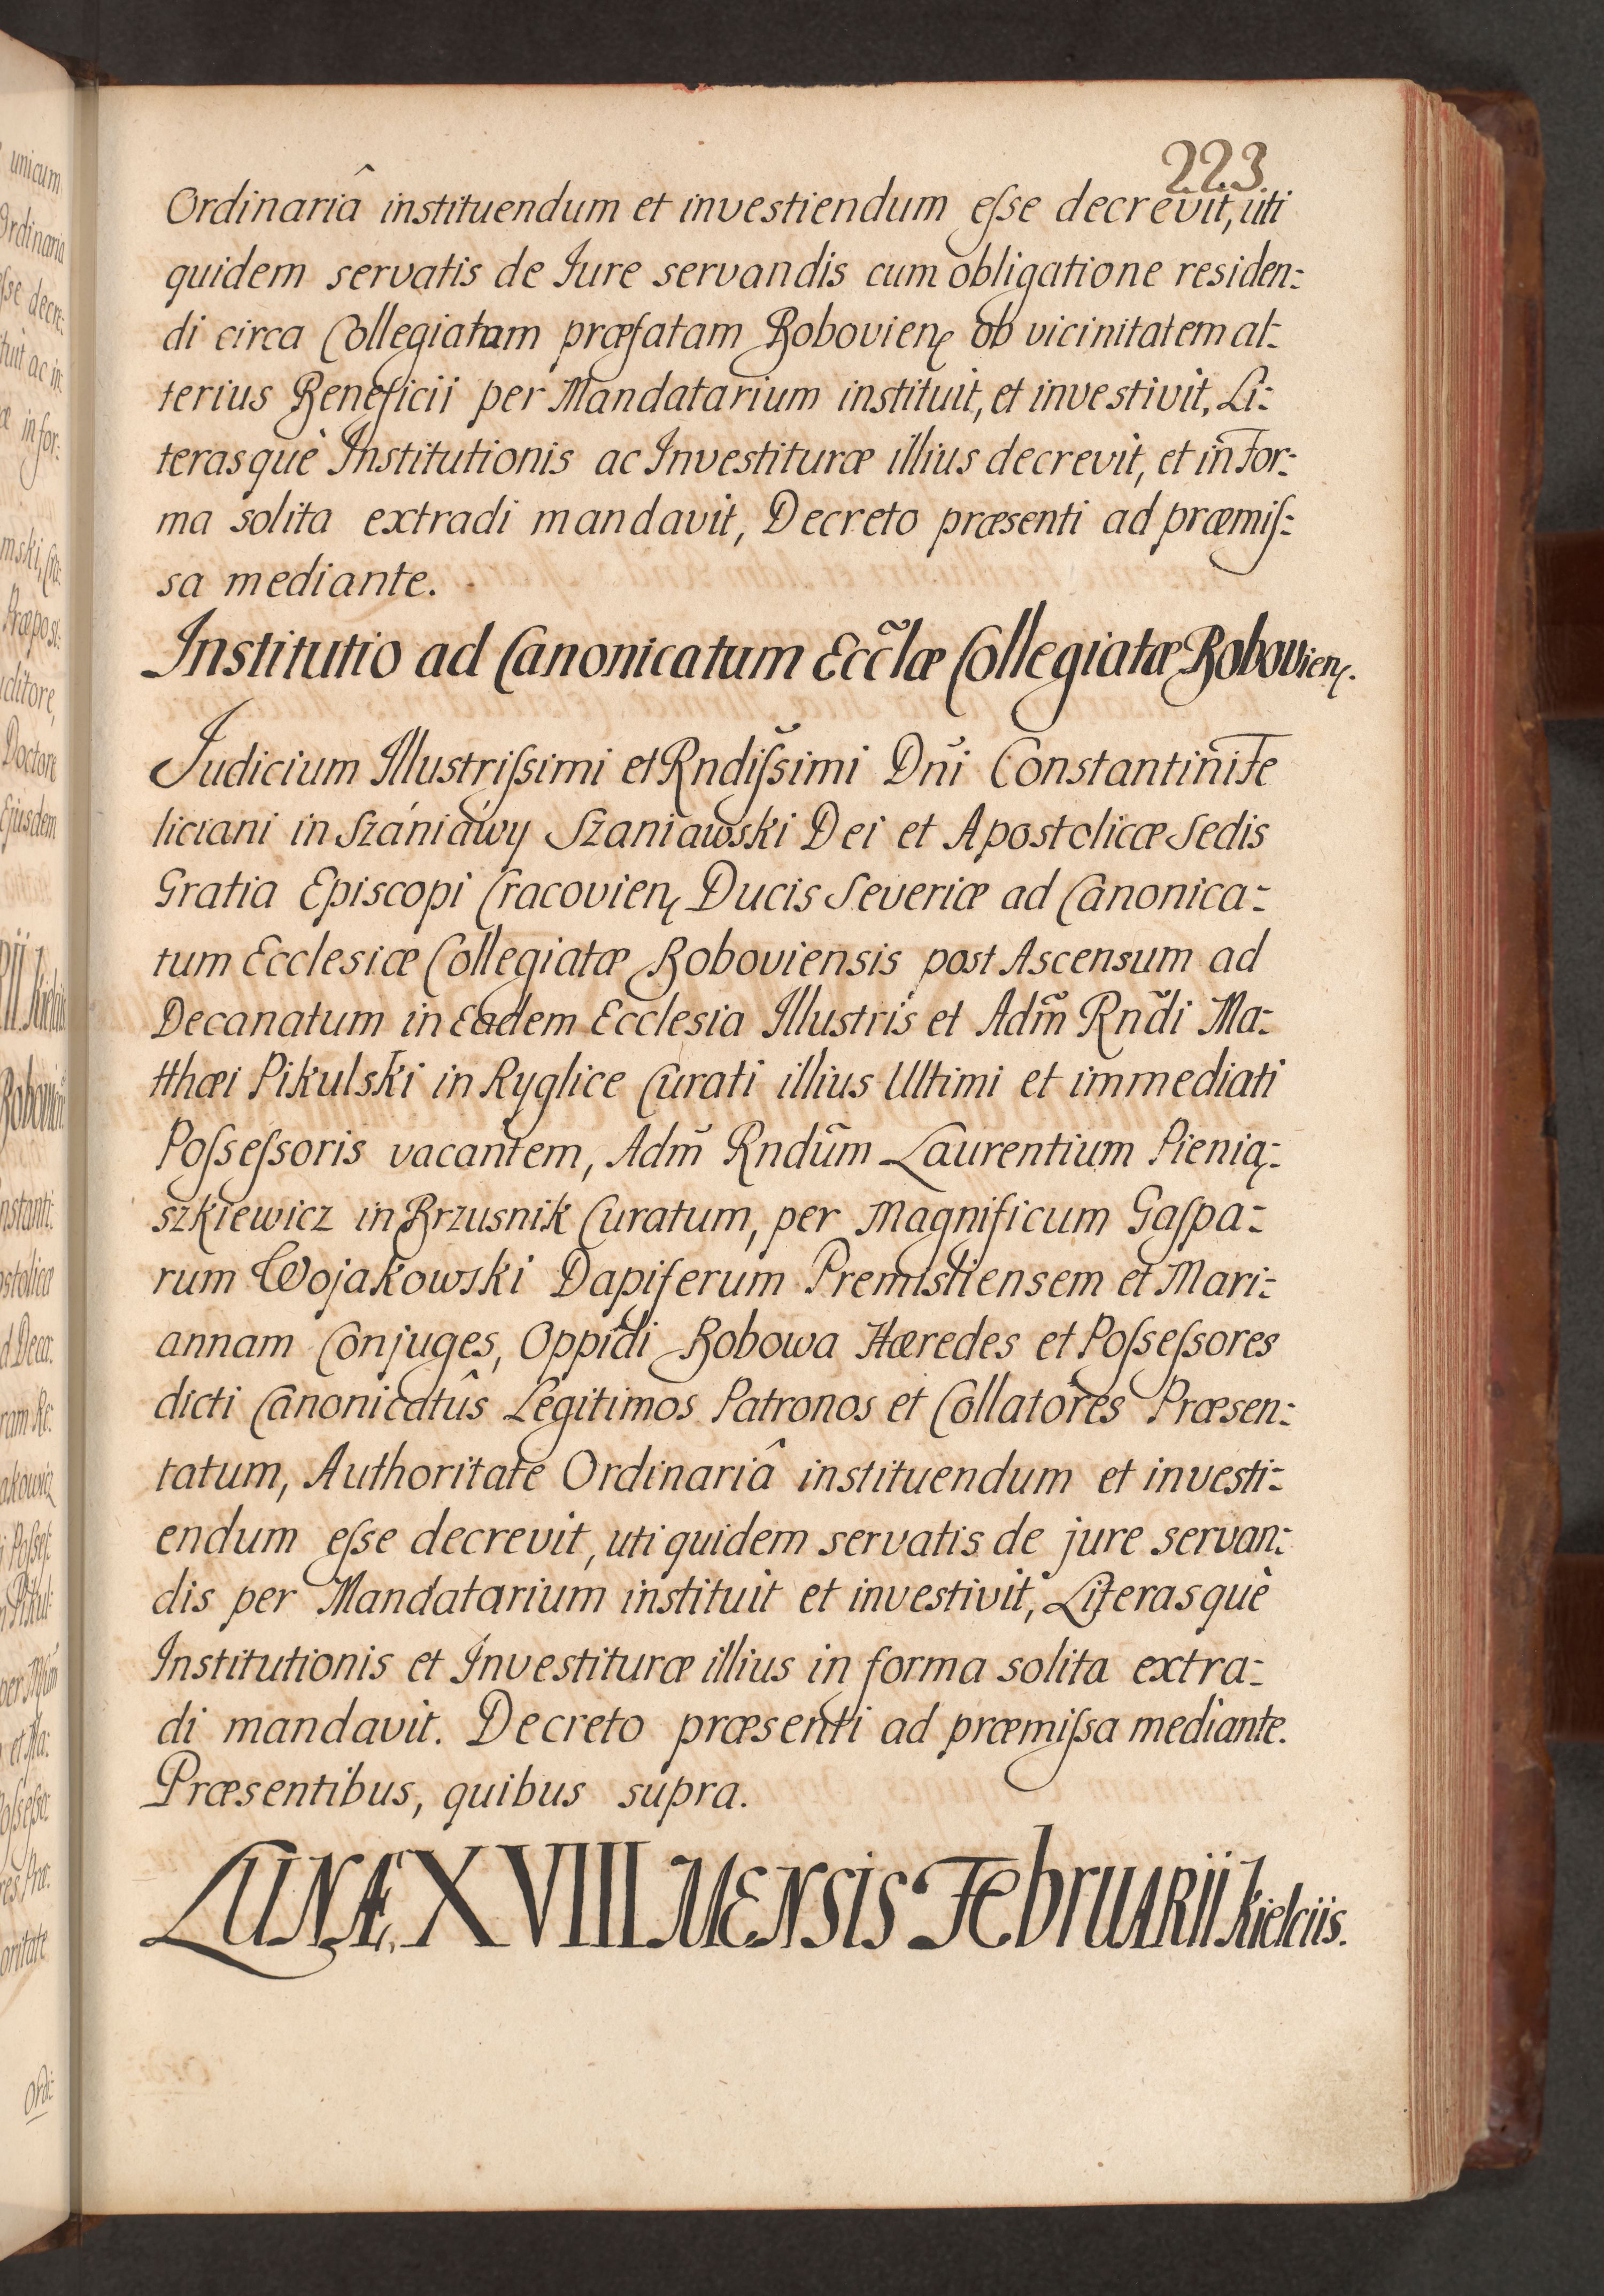 223.
Ordinariâ instituendum et investiendum eſse decrevit, uti
quidem servatis de Iure servandis cum obligatione residen:
di circa Collegiatam præfatam Bobovien ob vicinitatem al:
terius Beneficii per Mandatarium instituit, et investivit, Li:
terasquè Institutionis ac Investituræ illius decrevit, et in For:
ma solita extradi mandavit, Decreto præsenti ad præmiſ:
sa mediante.
Institutio ad Canonicatum Eccl̃æ Collegiatæ Bobovien.
Judicium Illustriſsimi et Rndiſsimi Dn̄i Constantini Fe
liciani in Szaniawy Szaniawski Dei et Apostolicæ Sedis
Gratia Episcopi Cracovien Ducis Severiæ ad Canonica:
tum Ecclesiæ Collegiatæ Boboviensis post Ascensum ad
Decanatum in Eadem Ecclesia Illustris et Adm̃ Rñdi Ma:
tthæi Pikulski in Ryglice Curati illius Ultimi et immediati
Poſseſsoris vacantem, Adm̃ Rndũm Laurentium Pienią:
szkiewicz in Brzusnik Curatum, per Magnificum Gaſpa:
rum Wojakowski Dapiferum Premisliensem et Mari:
annam Conjuges, Oppidi Bobowa Hæredes et Poſseſsores
dicti Canonicatûs Legitimos Patronos et Collatores Præsen:
tatum, Authoritate Ordinariâ instituendum et investi:
endum eſse decrevit, uti quidem servatis de jure servan:
dis per Mandatarium instituit et investivit, Literasquè
Institutionis et Investituræ illius in forma solita extra:
di mandavit. Decreto præsenti ad præmiſsa mediante.
Præsentibus, quibus supra.
LUNÆ XVIII MENsis FebruARII Kielciis.